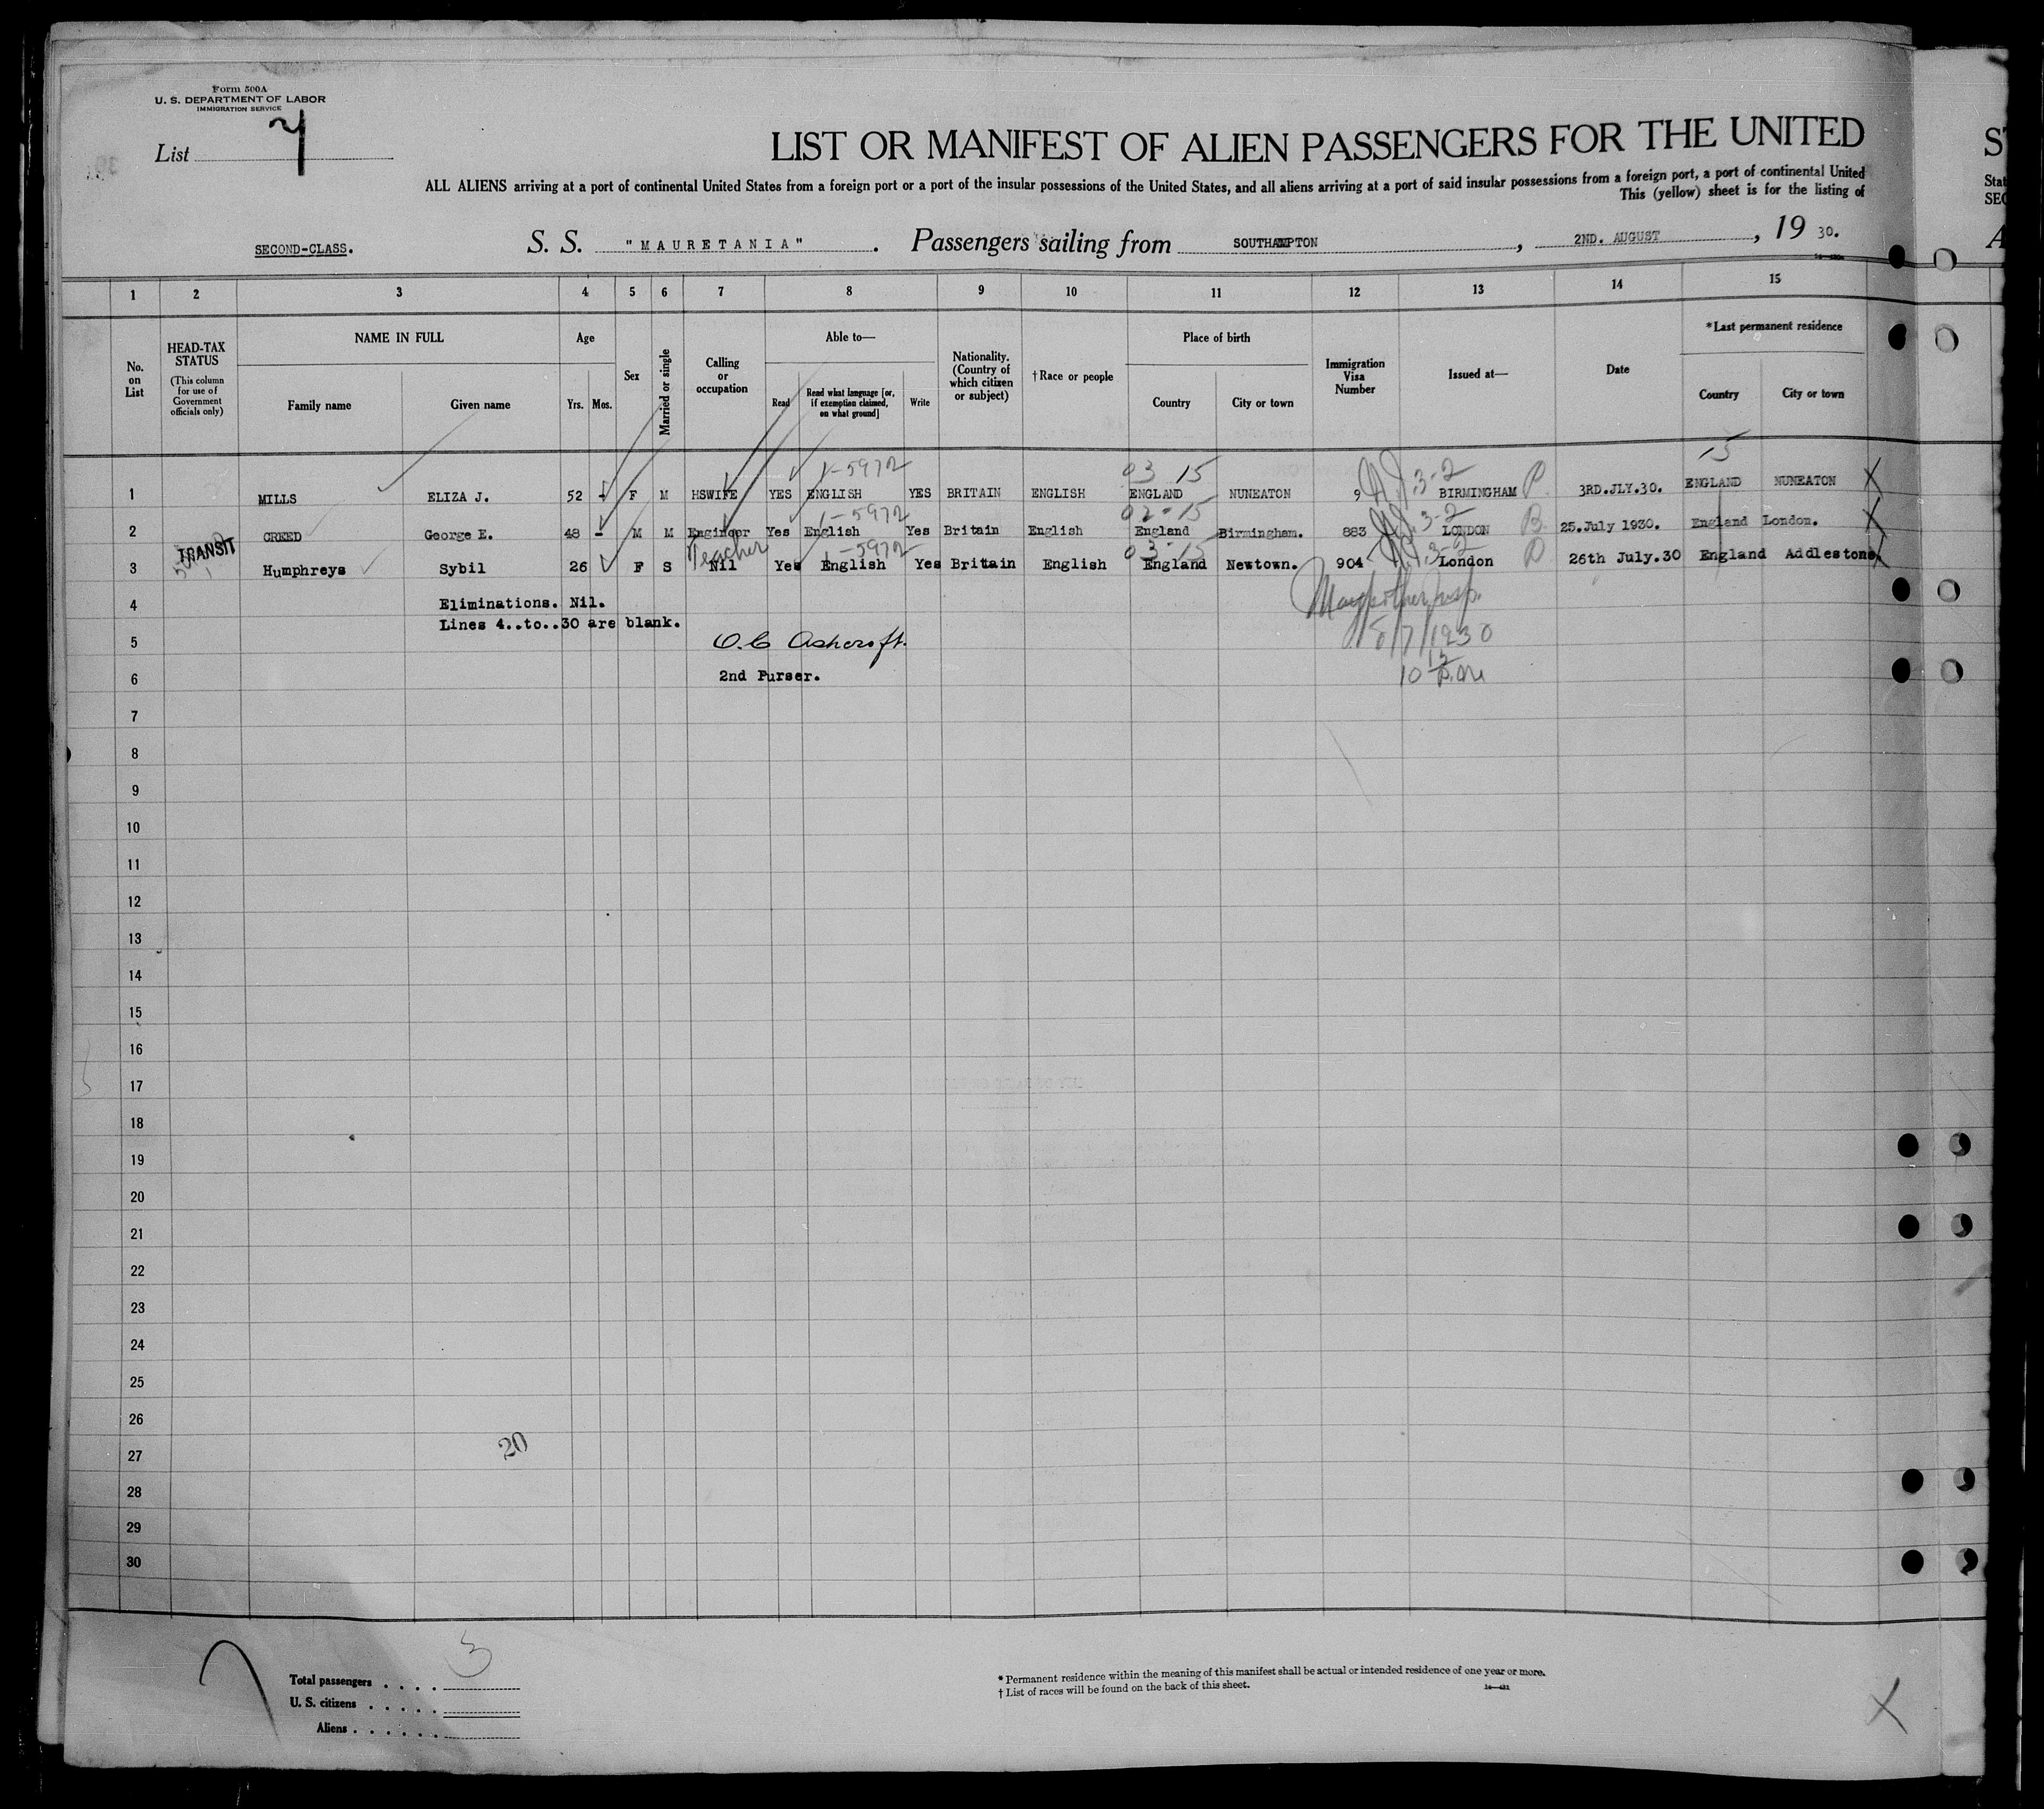 Form 500A
U. S. DEPARTMENT OF LABOR
IMMIGRATION SERVICE
List 7
LIST OR MANIFEST OF ALIEN PASSENGERS FOR THE UNITED
ALL ALIENS arriving at a port of continental United States from a foreign port or a port of the insular possessions of the United States, and all aliens arriving at a port of said insular possessions from a foreign port, a port of continental United
This (yellow) sheet is for the listing of
SECOND-CLASS. S. S. "MAURETANIA". Passengers sailing from SOUTHAMPTON, 2ND. AUGUST, 19 30.
1 2 3 4 5 6 7 8 9 10 11 12 13 14 15
No. on List
HEAD-TAX STATUS
(This column for use of Government officials only)
NAME IN FULL
Family name Given name
Age
Yrs. Mos.
Sex
Married or single
Calling or occupation
Able to—
Read Read what language [or, if exemption claimed, on what ground] Write
Nationality. (Country of which citizen or subject)
† Race or people
Place of birth
Country City or town
Immigration Visa Number
Issued at—
Date
* Last permanent residence
Country City or town
1-5972 03 15 3-2 P 15
1 MILLS ELIZA J. 52 - F M HSWIFE YES ENGLISH YES BRITAIN ENGLISH ENGLAND NUNEATON 9 BIRMINGHAM 3RD.JLY.30. ENGLAND NUNEATON X
1-5972 02-15 3-2
2 CREED George E. 48 - M M Engineer Yes English Yes Britain English England Birmingham. 883 LONDON 25.July 1930. England London. X
TRANSIT Teacher 1-5972 03-15 3-2
3 Humphreys Sybil 26 F S Nil Yes English Yes Britain English England Newtown. 904 London 26th July.30 England Addlestone X
4 Eliminations. Nil.
Lines 4..to..30 are blank.
5 O.C Ashcroft.
6 2nd Purser.
7
8
9
10
11
12
13
14
15
16
17
18
19
20
21
22
23
24
25
26
20
27
28
29
30
Total passengers . . . . 3
U. S. citizens . . . . .
Aliens . . . . . .
* Permanent residence within the meaning of this manifest shall be actual or intended residence of one year or more.
† List of races will be found on the back of this sheet.
X